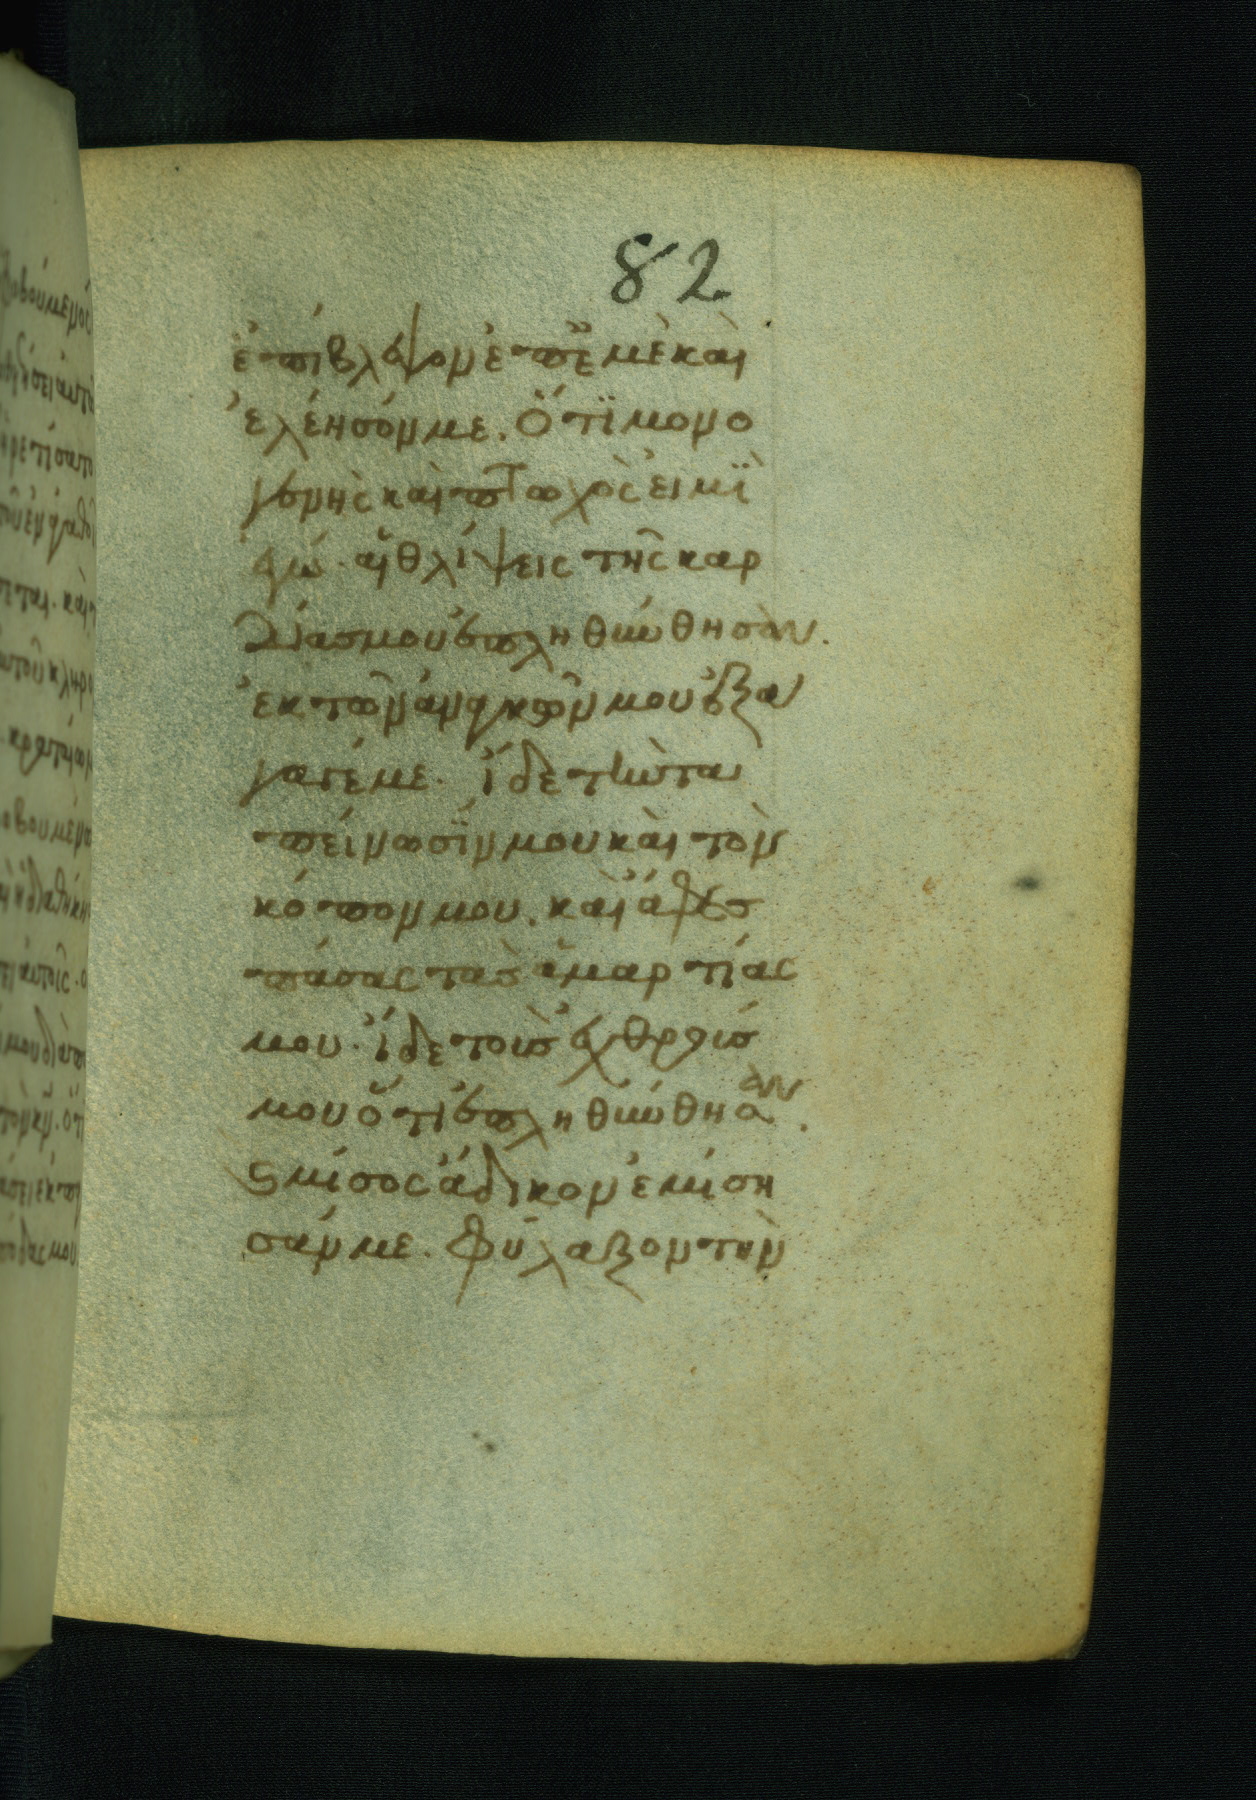 82
ἐπίβλεψον ἐπ' ἐμὲ καὶ
ἐλέησόν με. ὅτι μονο
γενὴς καὶ πτωχὸς εἰμὶ
ἐγώ. αἱ θλίψεις τῆς καρ
δίας μου ἐπληθύνθησαν.
ἐκ τῶν ἀναγκῶν μου ἐξά
γαγέ με. ἴδε τὴν τα
πείνωσίν μου καὶ τὸν
κόπον μου. καὶ ἄφες
πάσας τὰς ἁμαρτίας
μου. ἴδε τοὺς ἐχθρούς
μου ὅτι ἐπληθύνθησαν.
ϛ μίσος ἄδικον ἐμίση
σάν με. Φύλαξον τὴν